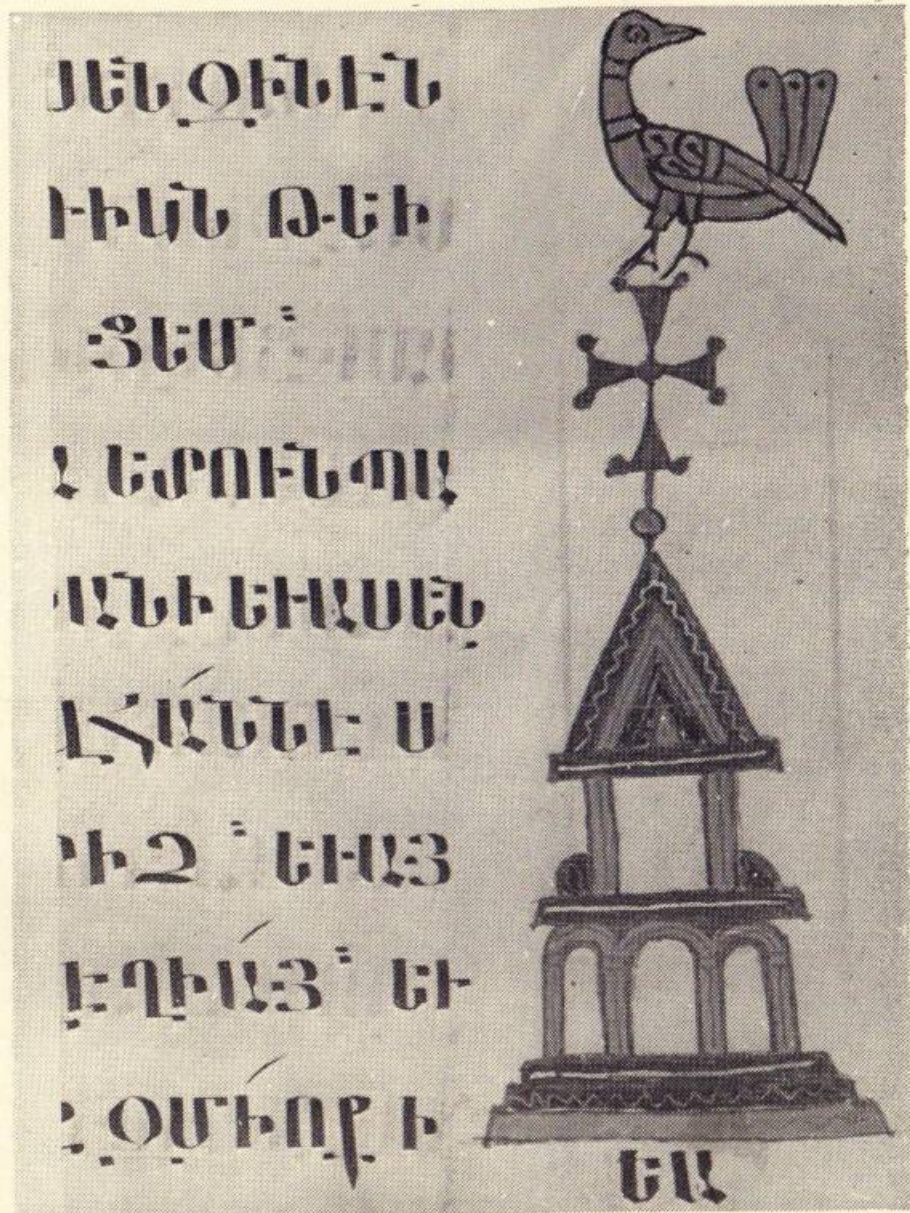 ՍԵՆ ԶԻՆԷՆ
ԴԻԿՆ ԹԵ Ի
ՑԵՄ ։
Ա ԵՏՈՒՆ ՊԱ
ԱՆԻ ԵՒ ԱՍԵՆ
ՀԱՆՆԷ Ս
ԻՉ ։ ԵՒ ԱՅ
ԷՂԻԱՅ ։ ԵՒ
ԶՄԻ ՈՔ Ի
ԵԱ